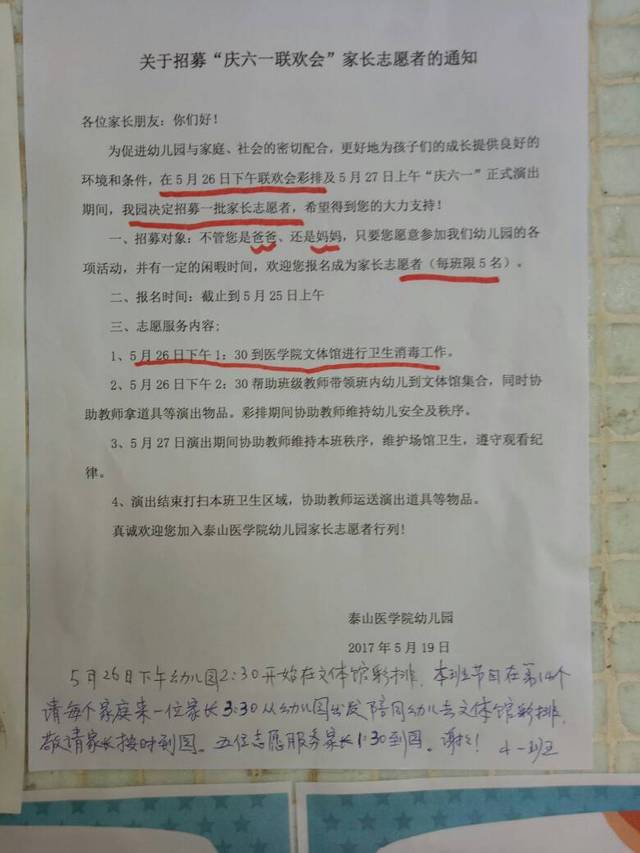 关于招募“庆六一联欢会”家长志愿者的通知
各位家长朋友：你们好！
为促进幼儿园与家庭、社会的密切配合，更好地为孩子们的成长提供良好的
环境和条件，在5月26日下午联欢会彩排及5月27日上午“庆六一”正式演出
期间，我园决定招募一批家长志愿者，希望得到您的大力支持！
一、招募对象：不管您是爸爸、还是妈妈，只要您愿意参加我们幼儿园的各
项活动，并有一定的闲暇时间，欢迎您报名成为家长志愿者（每班限5名）。
二、报名时间：截止到5月25日上午
三、志愿服务内容：
1、5月26日下午1：30到医学院文体馆进行卫生消毒工作。
2、5月26日下午2：30帮助班级教师带领班内幼儿到文体馆集合，同时协
助教师拿道具等演出物品。彩排期间协助教师维持幼儿安全及秩序。
3、5月27日演出期间协助教师维持本班秩序，维护场馆卫生，遵守观看纪
律。
4、演出结束打扫本班卫生区域，协助教师运送演出道具等物品。
真诚欢迎您加入泰山医学院幼儿园家长志愿者行列！
泰山医学院幼儿园
2017年5月19日
5月26日下午幼儿园2:30开始在文体馆彩排，本班节目在第14个
请每个家庭来一位家长3:30从幼儿园出发陪同幼儿去文体馆彩排，
敬请家长按时到园。五位志愿服务家长1:30到园。谢谢！ 大一班